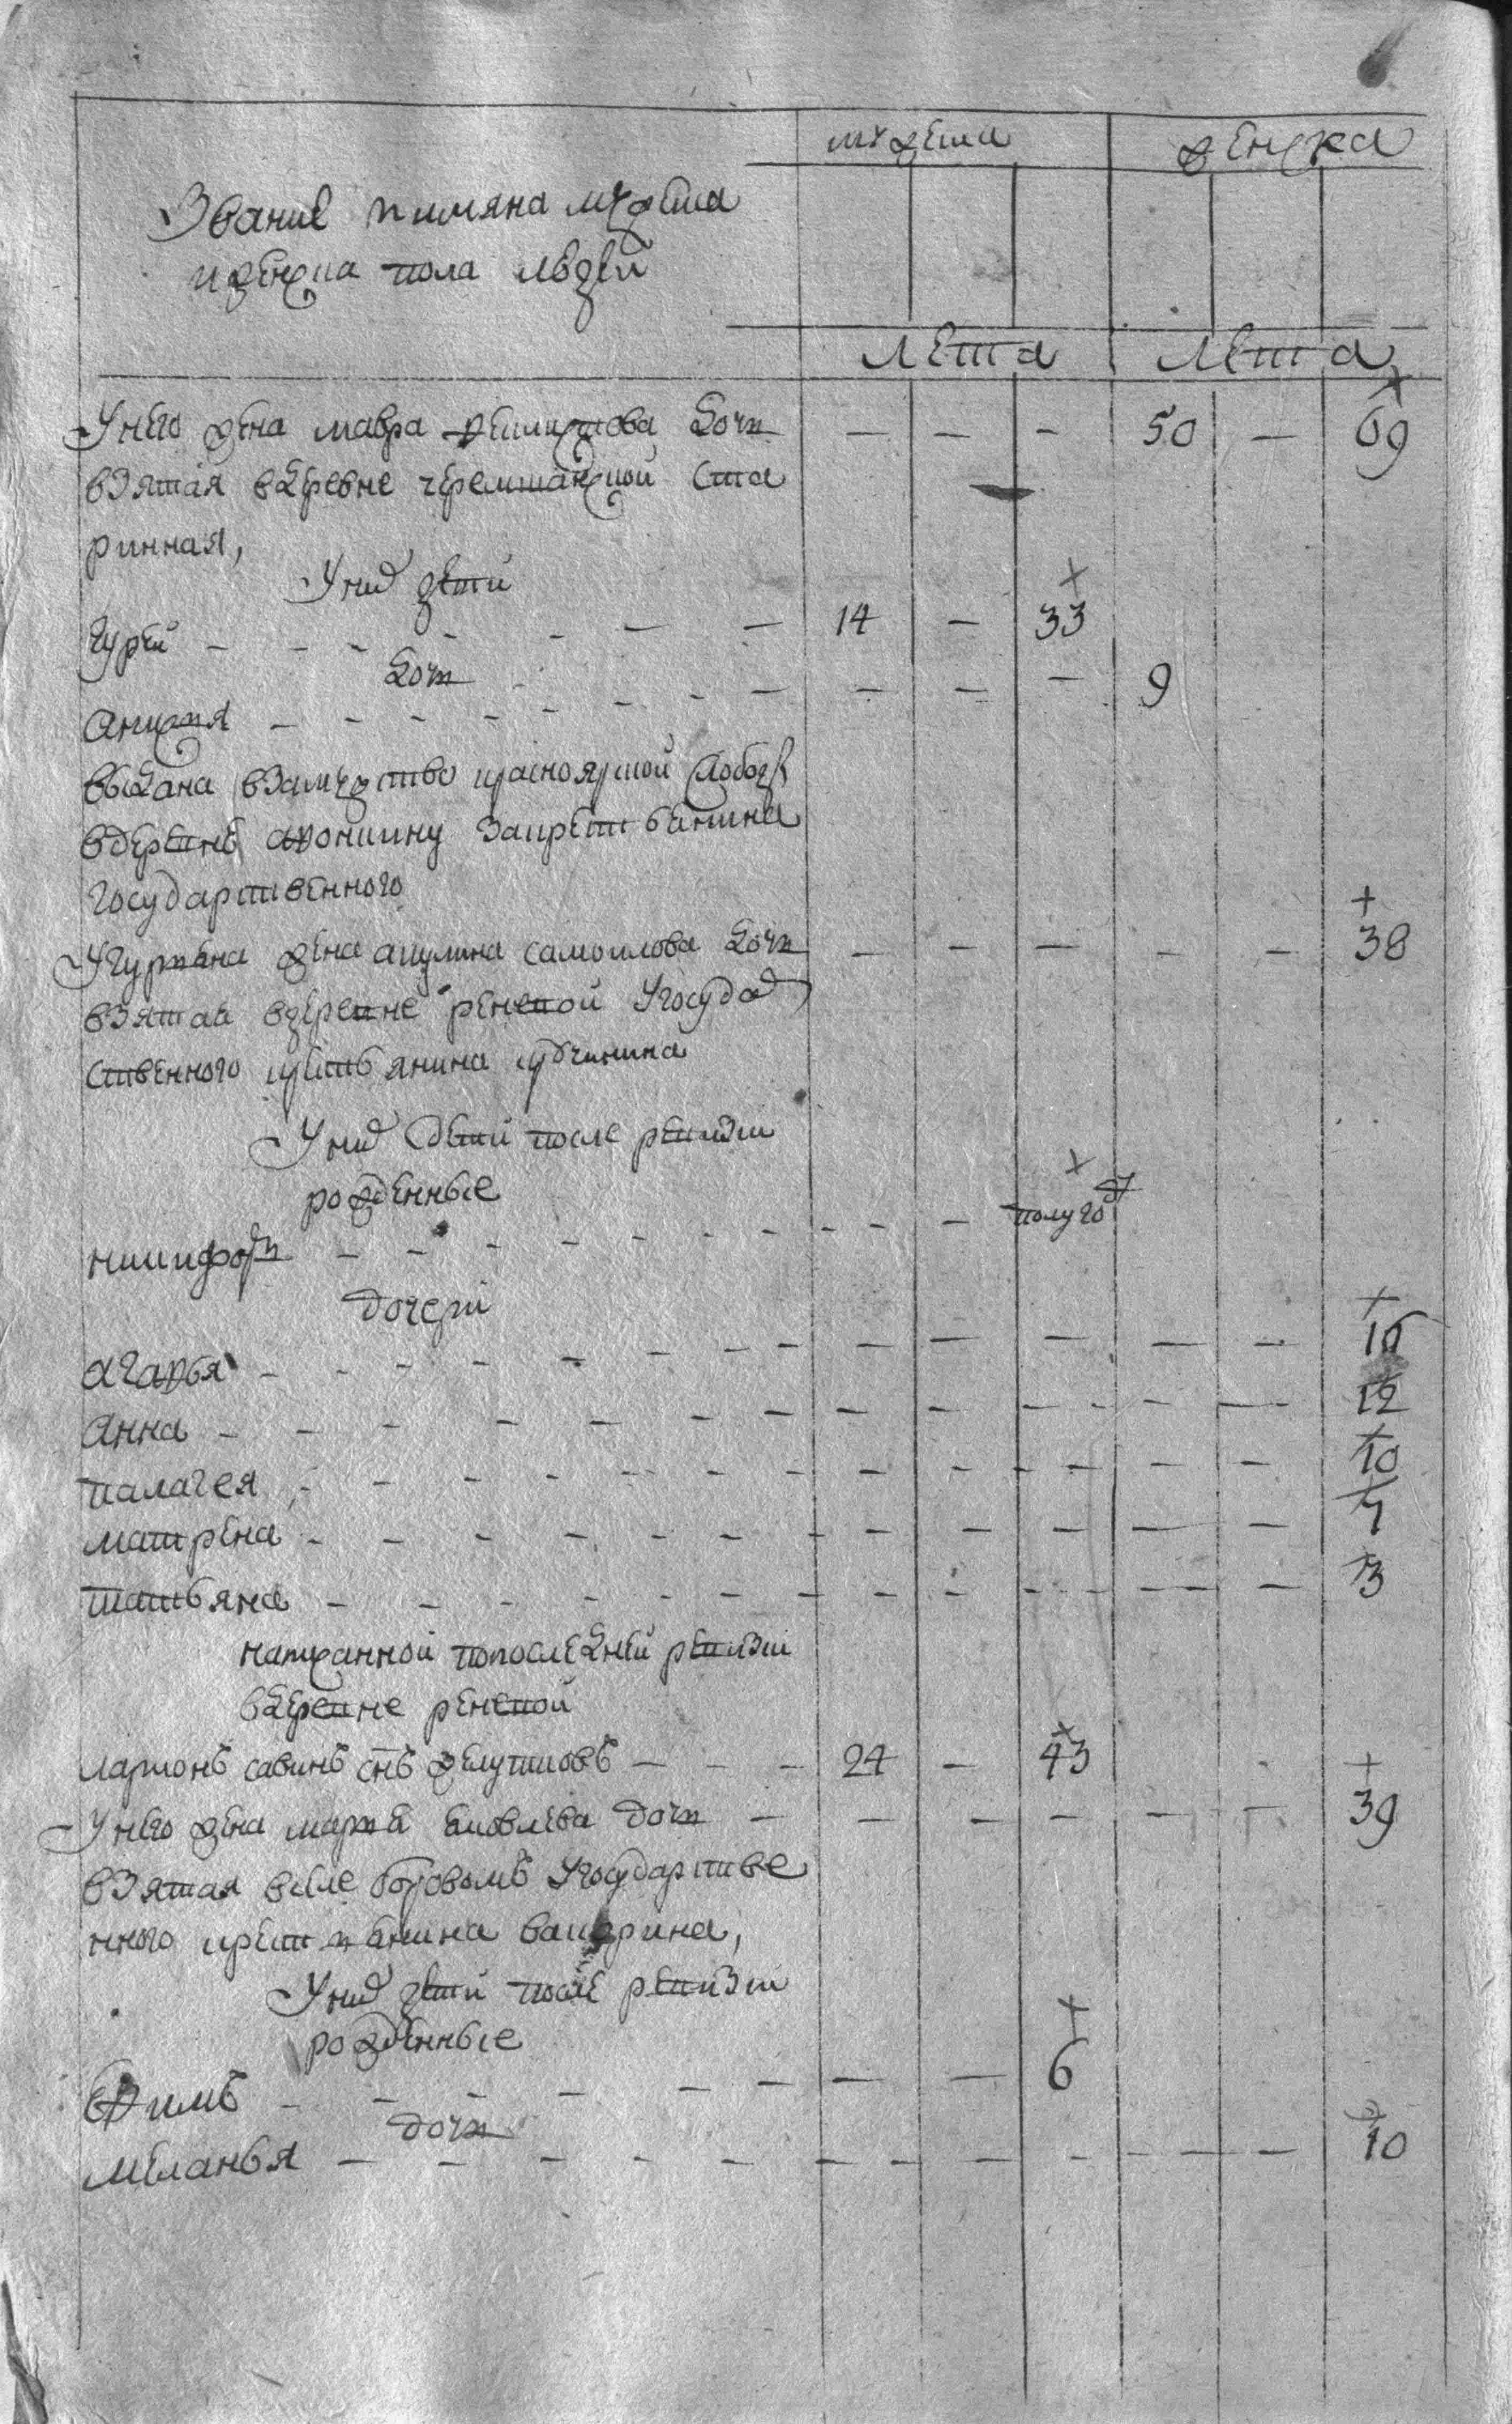 мужеска женска
Звание и имяна мужеска
и женска пола людей
Лета Лета
У него жена мавра дочь — — — 50 — 69
взятая в деревне черемшанской ста
ринная,
У них дети
Гурей — — — 14 — 33
дочь
Анисья — — — — — — 9
выдана в замужство красноярской слободы
в деревне афонину за крестьянина
государственного
У гурьяна жена акулина самоилова дочь — — — — — 38
взятая в деревне реневой У государ
ственного крестьянина
У них дети после ревизии
рожденные
никифоръ — — — полуго
дочери
агафья — — — — — 16
Анна — — — — — 12
палагея — — — — — 10
матрена — — — — — 7
татьяна — — — — — 3
написанной по последней ревизии
в деревне реневой
ларионъ савинъ снъ — — — 24 — 43
У него жена марфа яковлева дочь — — — — — — 39
взятая в селе боровомъ У государстве
нного крестьянина
У них дети после ревизии
рожденные
Ефимъ — — — — — 6
дочь
меланья — — — — — 10